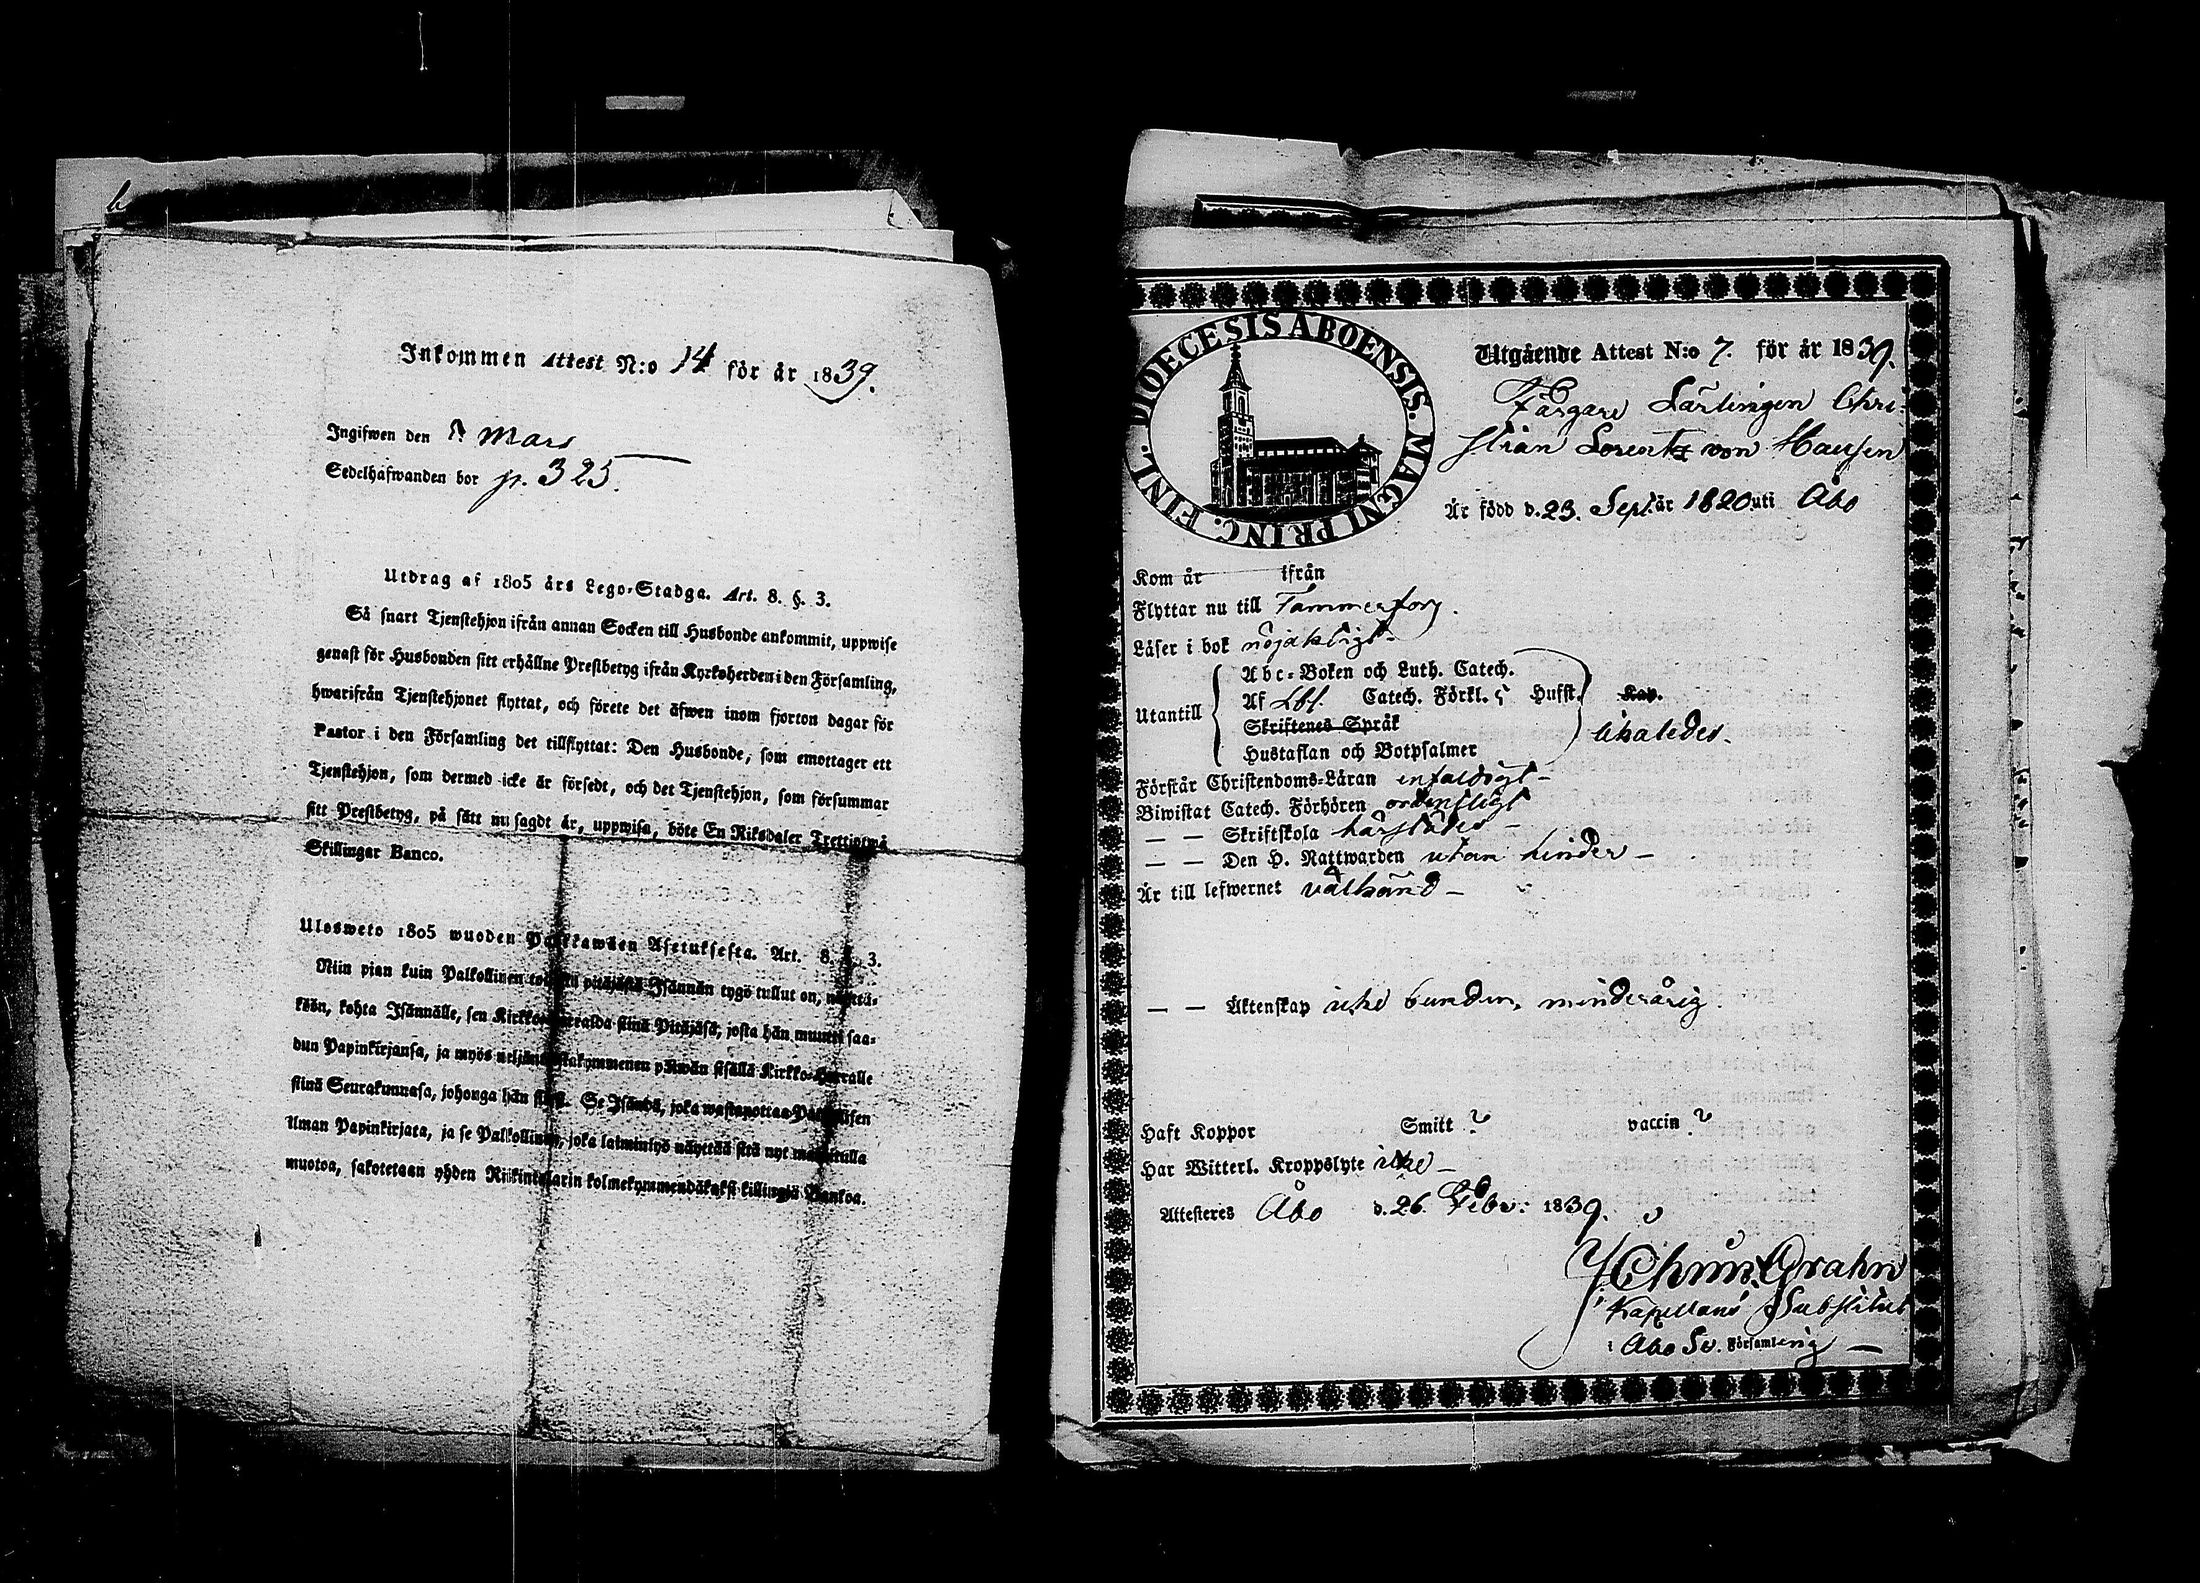 Inkommen Attest N:o 14 för år 1839.
Ingifwen den mars
Sedelhafwanden bor p. 325.
Utdrag af 1805 års Lego-Stadga. Art. 8. §. 3.
Så snart Tjenstehjon ifrån annan Socken till Husbonde ankommit, uppwise
genast för Husbonden sitt erhållne Prestbetyg ifrån Kyrkoherden i den Församling,
hwarifrån Tjenstehjonet flyttat, och förete det äfwen inom fjorton dagar för
Pastor i den Församling det tillflyttat: Den Husbonde, som emottager ett
Tjenstehjon, som dermed icke är försedt, och det Tjenstehjon, som försummar
sitt Prestbetyg, på sätt nu sagdt är, uppwisa, böte En Riksdaler Trettiotwå
Skillingar Banco.
Ulosweto 1805 wuoden Palkkawäen Asetuksesta. Art. 8. §. 3.
Niin pian kuin Palkollinen toisesta pitäjästä Isännän tygö tullut on, näyttä-
kään, kohta Isännälle, sen Kirkkoherralda siinä Pitäjäsä, josta hän muutti saa-
dun Papinkirjansa, ja myös neljäntoistakymmenen päiwän sisällä Kirkko-Herralle
siinä Seurakunnasa, johonga hän siirsi. Se Isändä, joka wastanottaa Palkollisen
ilman Papinkirjata, ja se Palkollinen, joka laimintyö näyttää sitä nyt mainitulla
muotoa, sakotetaan yhden Riikintalarin kolmekymmendäkaksi killingiä Bankoa.
DIOECESIS ABOENSIS. MAGNI PRINC. FINL.
Utgående Attest N:o 7. för år 1839.
Färgare Lärlingen Chri-
stian Lorentz von Hausen
Är född d. 23. Sept. år 1820 uti Åbo
Kom år ifrån
Flyttar nu till Tammerfors.
Läser i bok nöjaktigt
Abc-Boken och Luth. Catech.
Utantill Af Lbl. Catech. Förkl. Husst. Kap.
Skriftenes Språk likaledes.
Hustaflan och Botpsalmer
Förstår Christendoms-Läran enfaldigt
Biwistat Catech. Förhören ordentligt
— — Skriftskola härstädes
— — Den H. Nattwarden utan hinder
Är till lefwernet välkänd
— — Äktenskap icke bunden, minderårig.
Haft Koppor Smitt ? vaccin ?
Har Witterl. Kroppslyte icke
Attesteres Åbo d. 26. Febr. 1839.
Grahn
Kapellans Substitut
i Åbo Sv. Församling